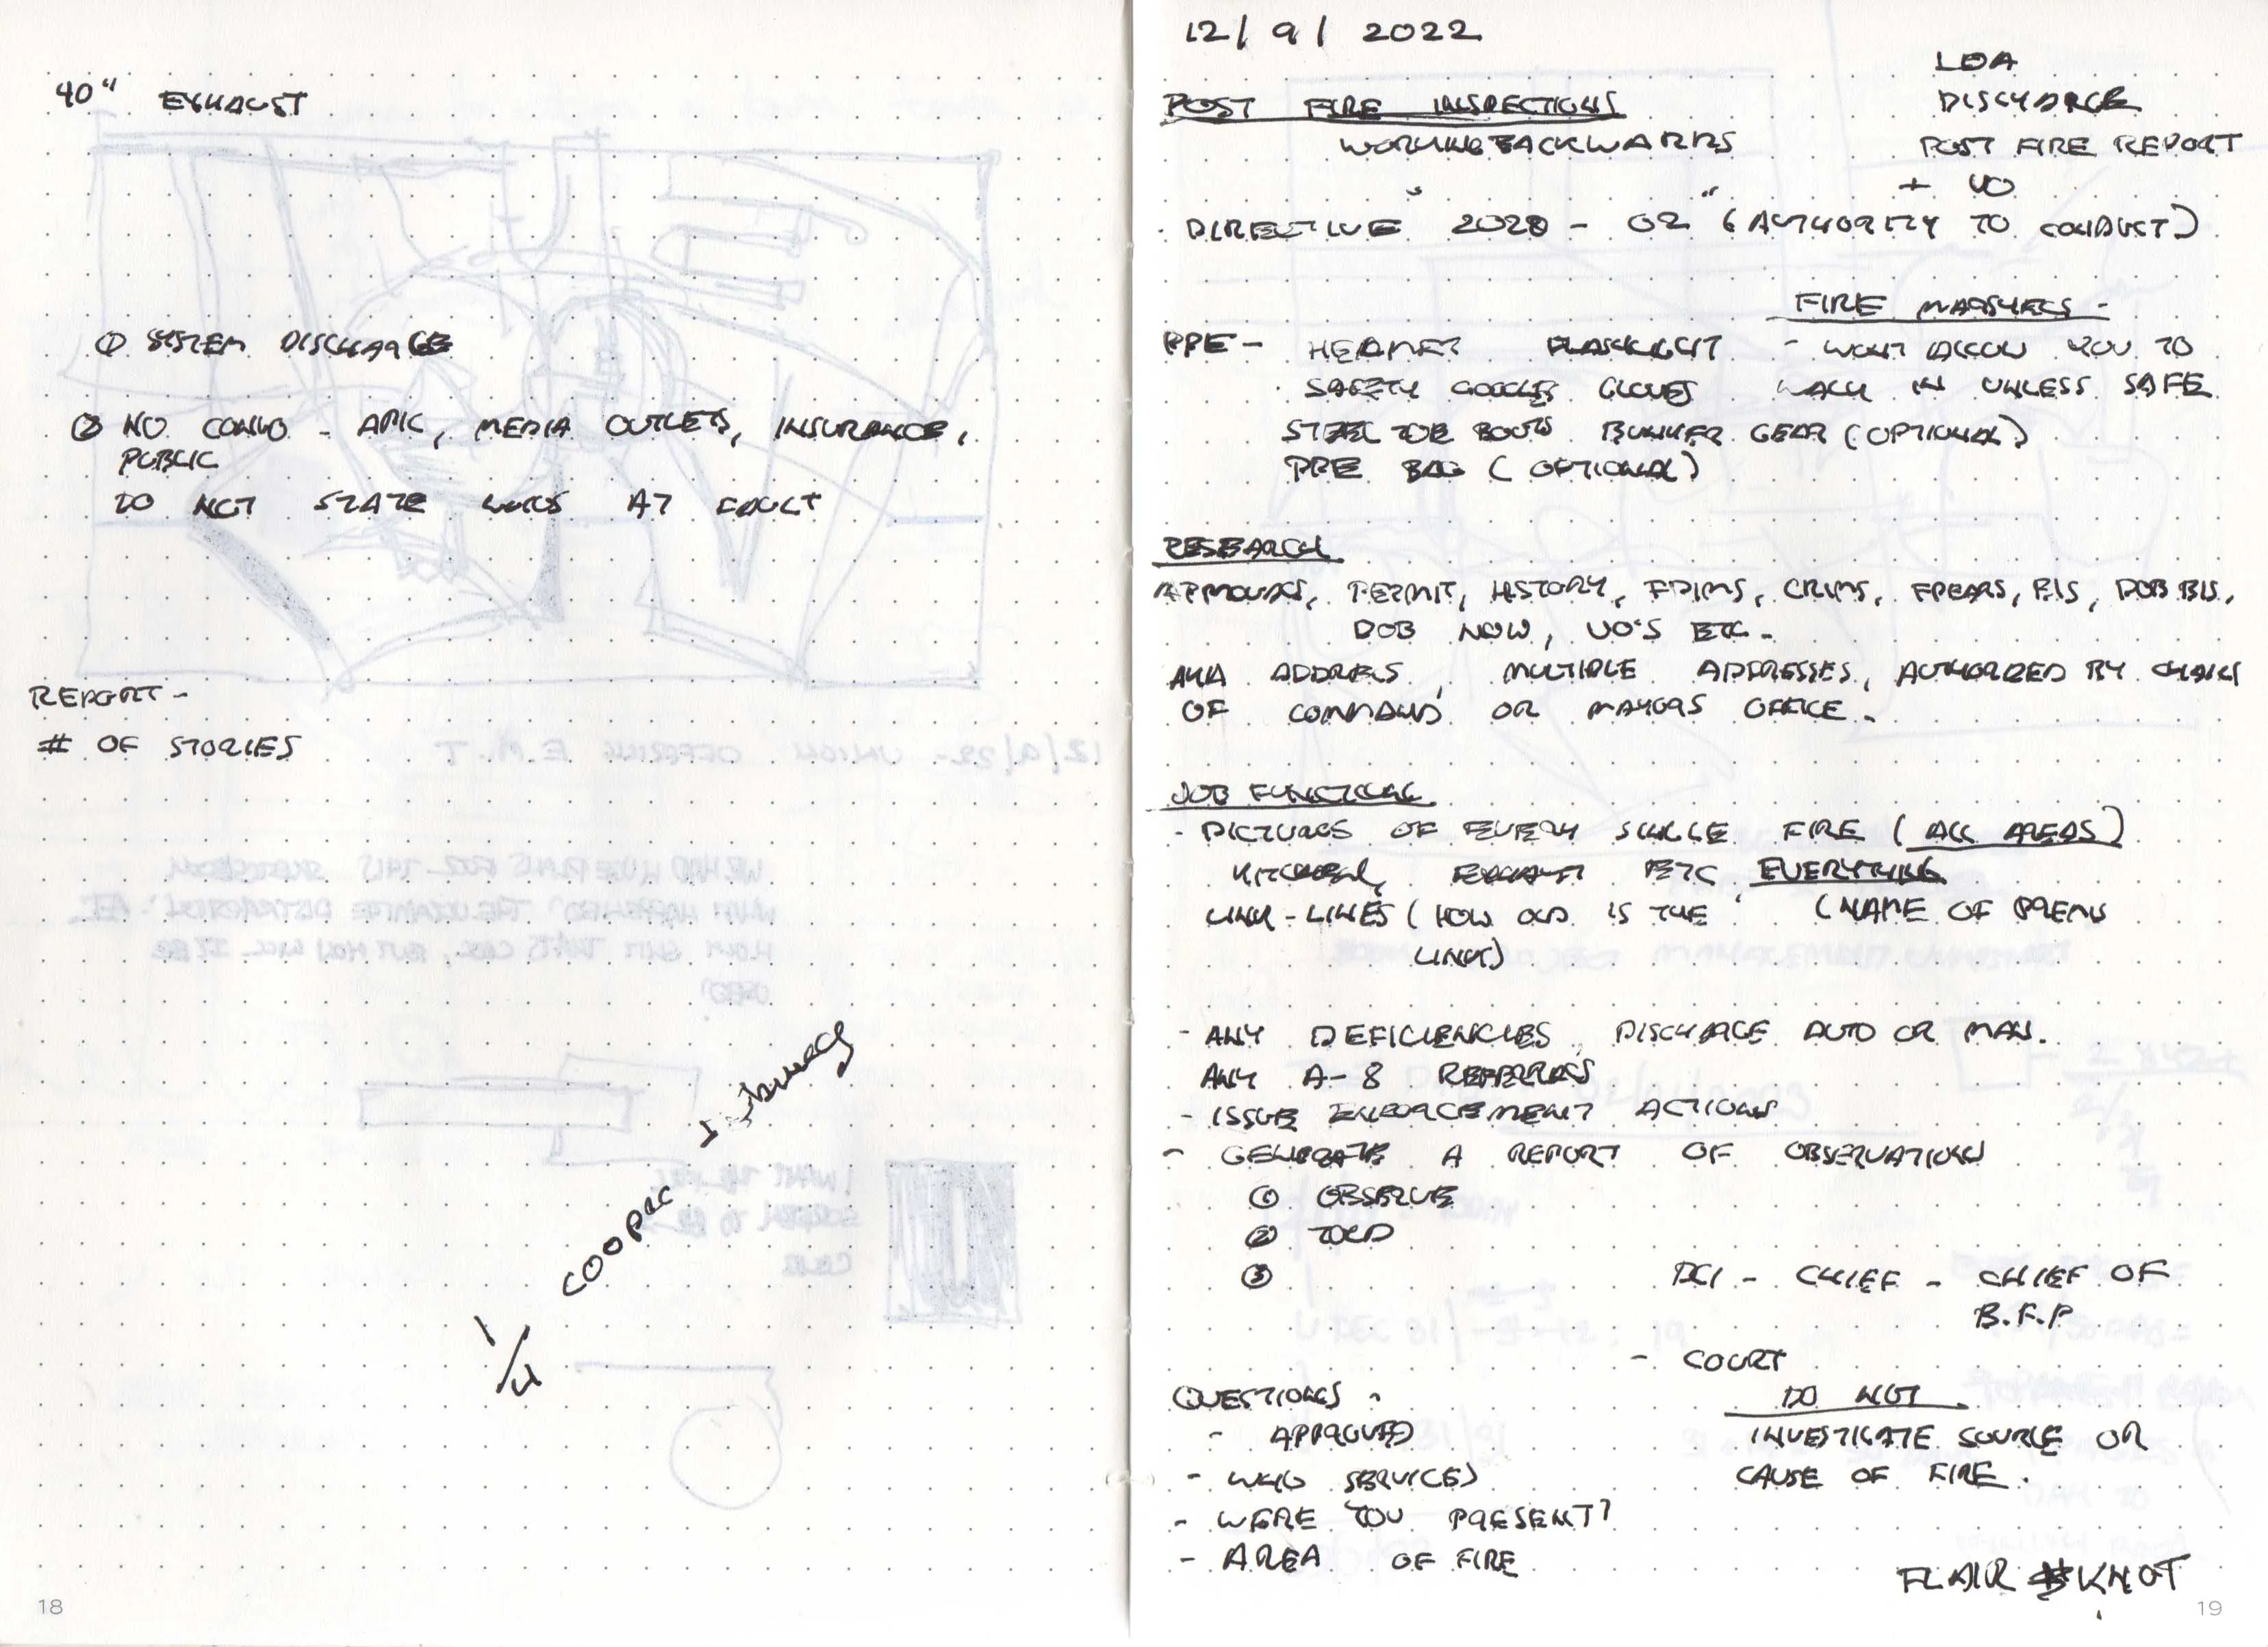 40" EXHAUST
① SYSTEM DISCHARGE
② NO CONVO - AMC, MEDIA OUTLETS, INSURANCE,
PUBLIC
DO NOT STATE WHOS AT FAULT
REPORT -
# OF STORIES
1/4 COOPER
18
12/9/2022
LDA
DISCHARGE
POST FIRE REPORT
+ VO
POST FIRE INSPECTIONS
WORKING BACKWARDS
· DIRECTIVE 2020 - 02 (AUTHORITY TO CONDUCT)
FIRE MARSHALS -
- WONT ALLOW YOU TO
WALK IN UNLESS SAFE
PPE - HELMET FLASHLIGHT
· SAFETY GOGGLES GLOVES
STEEL TOE BOOTS BUNKER GEAR (OPTIONAL)
PPE BAG (OPTIONAL)
RESEARCH
APPROVALS, PERMIT, HISTORY, FPIMS, CRIMS, FPEARS, BIS, DOB BIS,
DOB NOW, VO'S ETC -
AKA ADDRESS, MULTIPLE ADDRESSES, AUTHORIZED BY CHAIN
OF COMMAND OR MAYORS OFFICE -
JOB FUNCTIONS
- PICTURES OF EVERY SINGLE FIRE (ALL AREAS)
KITCHEN, EXHAUST ETC EVERYTHING
LINK - LINES (HOW OLD IS THE (NAME OF PREMS
LINK)
- ANY DEFICIENCIES, DISCHARGE AUTO OR MAN.
ANY A-8 REFERRALS
- ISSUE ENFORCEMENT ACTIONS
- GENERATE A REPORT OF OBSERVATIONS
① OBSERVE
② TOLD
③
DCI - CHIEF - CHIEF OF
B.F.P
- COURT
QUESTIONS -
- APPROVED
- WHO SERVICES
- WERE YOU PRESENT?
- AREA OF FIRE
DO NOT
INVESTIGATE SOURCE OR
CAUSE OF FIRE.
FLAIR KNOT
19